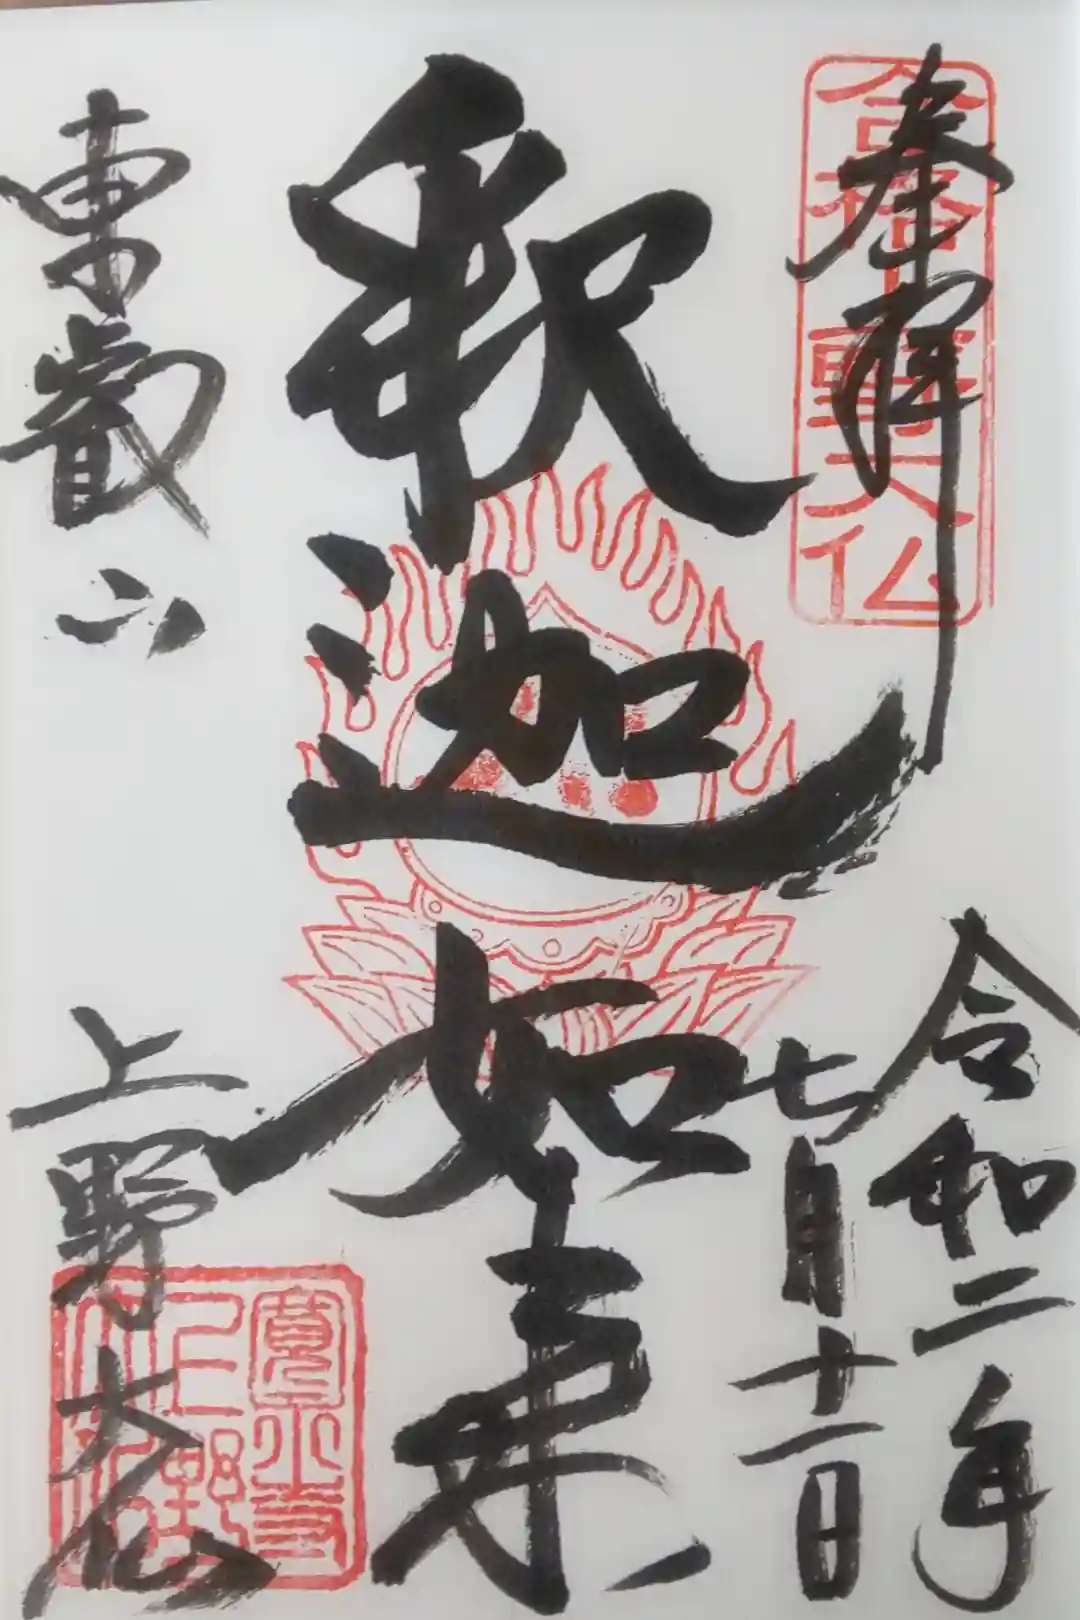 奉拝
合格大仏
令和二年
七月十一日
釈迦如来
東叡山
上野大仏
寛永寺
上野
大仏